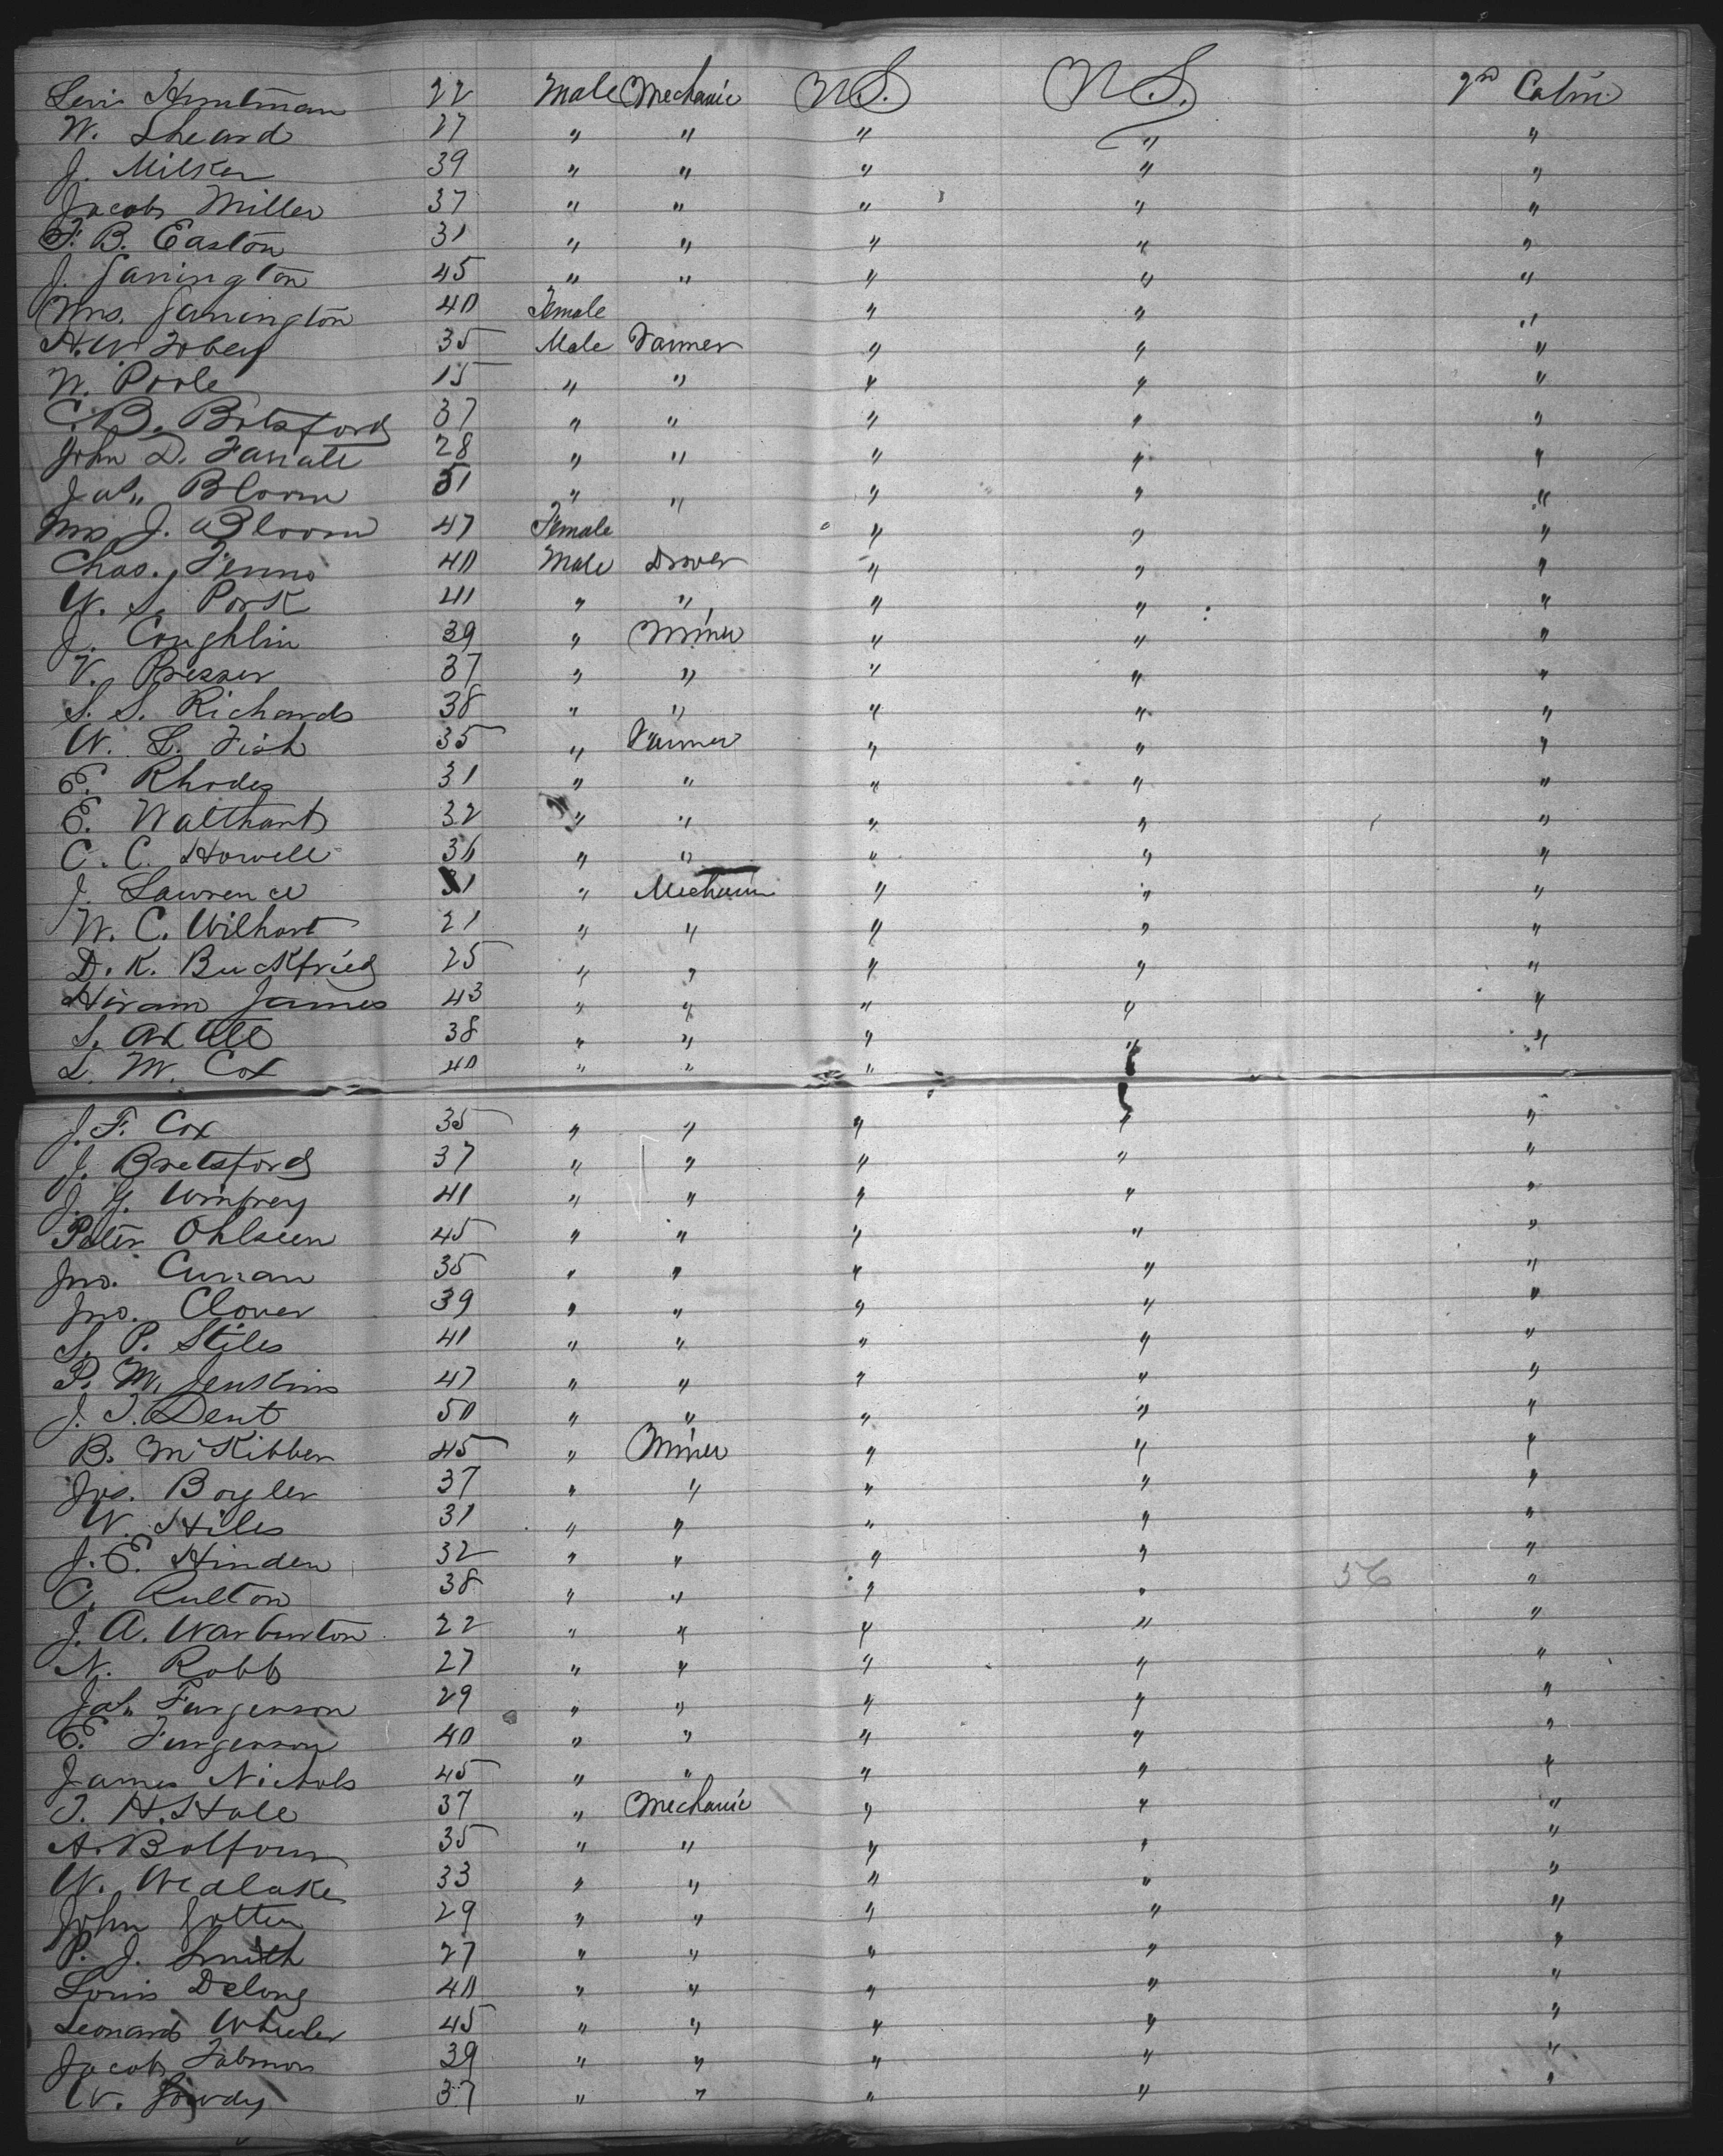 Levi Huntman 22 Male Mechanic U.S. U.S. 2nd Cabin
W. Sheard 27 " " " " "
J. Milsker 39 " " " " "
Jacob Miller 37 " " " " "
F. B. Easton 31 " " " " "
J. Garrington 45 " " " " "
Mrs. Garrington 40 Female " " "
H. W. Tobey 35 Male Farmer " " "
W. Poole 15 " " " " "
C. B. Botsford 37 " " " " "
John D. 28 " " " " "
Jas. Bloom 51 " " " " "
Mrs J. Bloom 47 Female " " "
Chas. Fenno 40 Male Drover " " "
W. S. Pork 41 " " " " "
J. Coughlin 39 " Miner " " "
V. Presser 37 " " " " "
S. S. Richards 38 " " " " "
W. L. Fish 35 " Farmer " " "
E. Rhodes 31 " " " " "
E. Walthart 32 " " " " "
C. C. Howell 36 " " " " "
J. Lawrence 31 " Mechanic " " "
W. C. Wilhart 21 " " " " "
D. K. Buckfried 25 " " " " "
Hiram James 43 " " " " "
S. Axtell 38 " " " " "
L. M. Cox 40 " " " "
J. F. Cox 35 " " " " "
J. Bretsford 37 " " " " "
J. G. Umfrey 41 " " " " "
Peter Ohlseen 45 " " " " "
Jno. Curran 35 " " " " "
Jno. Clover 39 " " " " "
S. P. Stiles 41 " " " " "
P. M. Jenkins 47 " " " " "
J. T. Dent 50 " " " " "
B. McKibben 45 " Miner " " "
Jos. Boyler 37 " " " " "
W. Hiles 31 " " " " "
J. E. Hinden 32 " " " " "
C. Rulton 38 " " " " 56 "
J. A. Warburton 22 " " " " "
N. Robb 27 " " " " "
Jas. Furgerson 29 " " " " "
E. Furgerson 40 " " " " "
James Nichols 45 " " " " "
T. H. Hale 37 " Mechanic " " "
A. Balfour 35 " " " " "
W. Wedlake 33 " " " " "
John Gotten 29 " " " " "
P. J. Smith 27 " " " " "
Louis Delong 40 " " " " "
Leonard Wheeler 45 " " " " "
Jacob 39 " " " " "
W. Gowdy 37 " " " " "